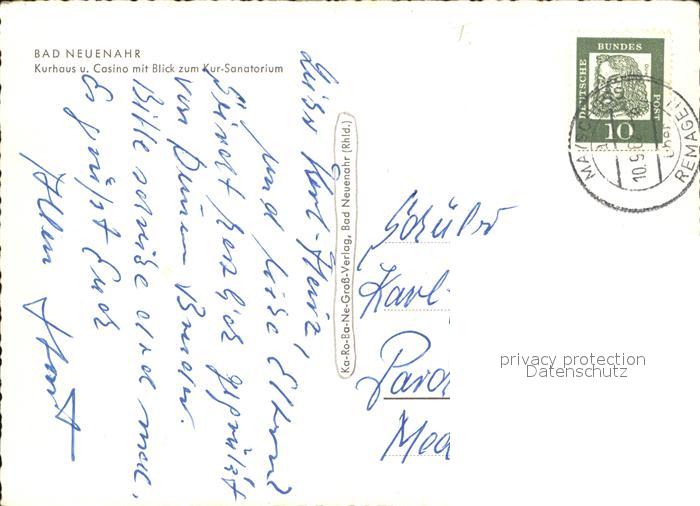 BAD NEUENAHR
Kurhaus u. Casino mit Blick zum Kur-Sanatorium
Lieber Karl-Heinz,
und liebe Eltern!
Seid herzlich gegrüßt
von Deinem Bruder.
Bitte schreibe auch mal.
Es grüßt Euch
Allen Horst
Ka-Ro-Ba-Ne-Groß-Verlag, Bad Neuenahr (Rhld.)
DEUTSCHE
BUNDES
POST
10
10.9.6
REMAGEN
Schüler
Karl-
privacy protection
Datenschutz